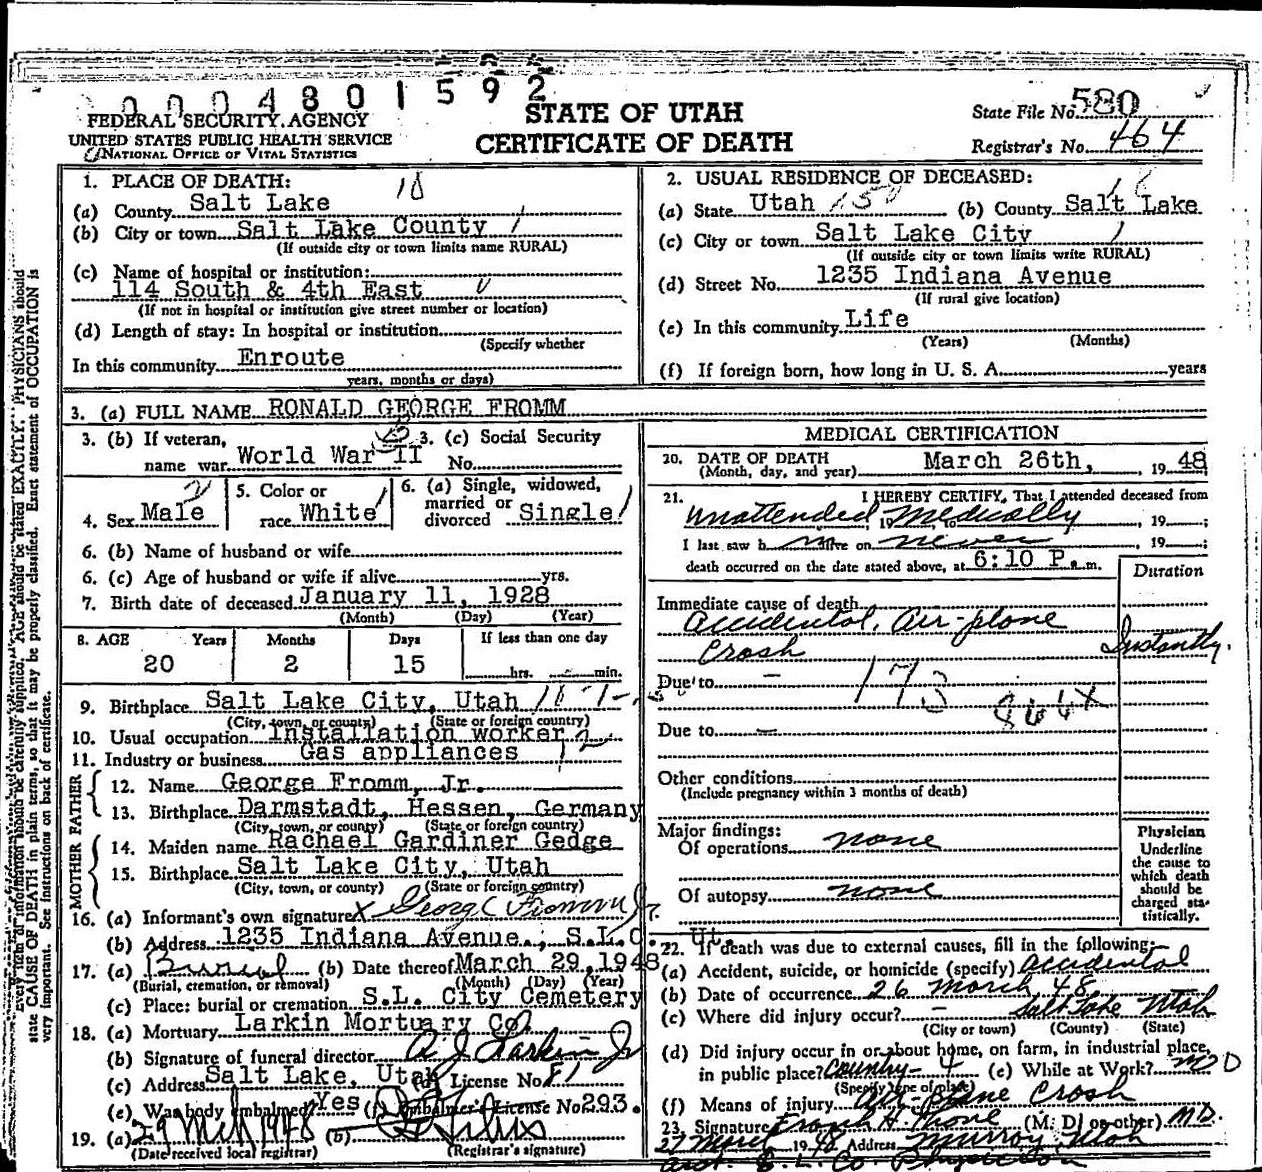 0004801592
FEDERAL SECURITY AGENCY
UNITED STATES PUBLIC HEALTH SERVICE
NATIONAL OFFICE OF VITAL STATISTICS
STATE OF UTAH
CERTIFICATE OF DEATH
State File No. 580
Registrar's No. 464
1. PLACE OF DEATH: 18
(a) County Salt Lake
(b) City or town Salt Lake County 1
(If outside city or town limits name RURAL)
(c) Name of hospital or institution:
114 South & 4th East
(If not in hospital or institution give street number or location)
(d) Length of stay: In hospital or institution
(Specify whether
In this community Enroute
years, months or days)
2. USUAL RESIDENCE OF DECEASED:
(a) State Utah 150 (b) County Salt Lake
(c) City or town Salt Lake City 1
(If outside city or town limits write RURAL)
(d) Street No. 1235 Indiana Avenue
(If rural give location)
(e) In this community Life
(Years) (Months)
(f) If foreign born, how long in U. S. A. years
3. (a) FULL NAME RONALD GEORGE FROMM
3. (b) If veteran, name war World War II
3. (c) Social Security No.
4. Sex Male 2
5. Color or race White 1
6. (a) Single, widowed, married or divorced Single 1
6. (b) Name of husband or wife
6. (c) Age of husband or wife if alive yrs.
7. Birth date of deceased January 11, 1928
(Month) (Day) (Year)
8. AGE Years Months Days If less than one day
20 2 15 hrs. min.
9. Birthplace Salt Lake City, Utah
(City, town, or county) (State or foreign country)
10. Usual occupation Installation worker
11. Industry or business Gas appliances
FATHER
12. Name George Fromm, Jr.
13. Birthplace Darmstadt, Hessen, Germany
(City, town, or county) (State or foreign country)
MOTHER
14. Maiden name Rachael Gardiner Gedge
15. Birthplace Salt Lake City, Utah
(City, town, or county) (State or foreign country)
16. (a) Informant's own signature X George Fromm Jr.
(b) Address 1235 Indiana Avenue., S.L.C. Ut.
17. (a) Burial (b) Date thereof March 29, 1948
(Burial, cremation, or removal) (Month) (Day) (Year)
(c) Place: burial or cremation S.L. City Cemetery
18. (a) Mortuary Larkin Mortuary Co.
(b) Signature of funeral director A J Larkin Jr
(c) Address Salt Lake, Utah (d) License No. 81
(e) Was body embalmed? Yes (f) Embalmer's License No. 293
19. (a) 29 Mch 1948 (b)
(Date received local registrar) (Registrar's signature)
MEDICAL CERTIFICATION
20. DATE OF DEATH March 26th, 1948
(Month, day, and year)
21. I HEREBY CERTIFY, That I attended deceased from
Unattended, 19 to Medically, 19 ;
I last saw h m alive on never, 19 ;
death occurred on the date stated above, at 6:10 P. m.
Duration
Immediate cause of death
Accidental, Air-plane
Crash Instantly.
Due to - 173
866X
Due to -
Other conditions
(Include pregnancy within 3 months of death)
Major findings:
Of operations none
Of autopsy none
Physician
Underline
the cause to
which death
should be
charged sta-
tistically.
22. If death was due to external causes, fill in the following:
(a) Accident, suicide, or homicide (specify) Accidental
(b) Date of occurrence 26 March 48
(c) Where did injury occur? - Salt Lake Utah
(City or town) (County) (State)
(d) Did injury occur in or about home, on farm, in industrial place,
in public place? Country - 4 (e) While at Work? no
(Specify type of place)
(f) Means of injury Air-plane Crash
23. Signature (M. D. or other) M.D.
27 March 1948 Address Murray, Utah
Asst. S. L. Co. Physician
Every item of information should be carefully supplied. AGE should be stated EXACTLY. PHYSICIANS should
state CAUSE OF DEATH in plain terms, so that it may be properly classified. Exact statement of OCCUPATION is
very important. See instructions on back of certificate.